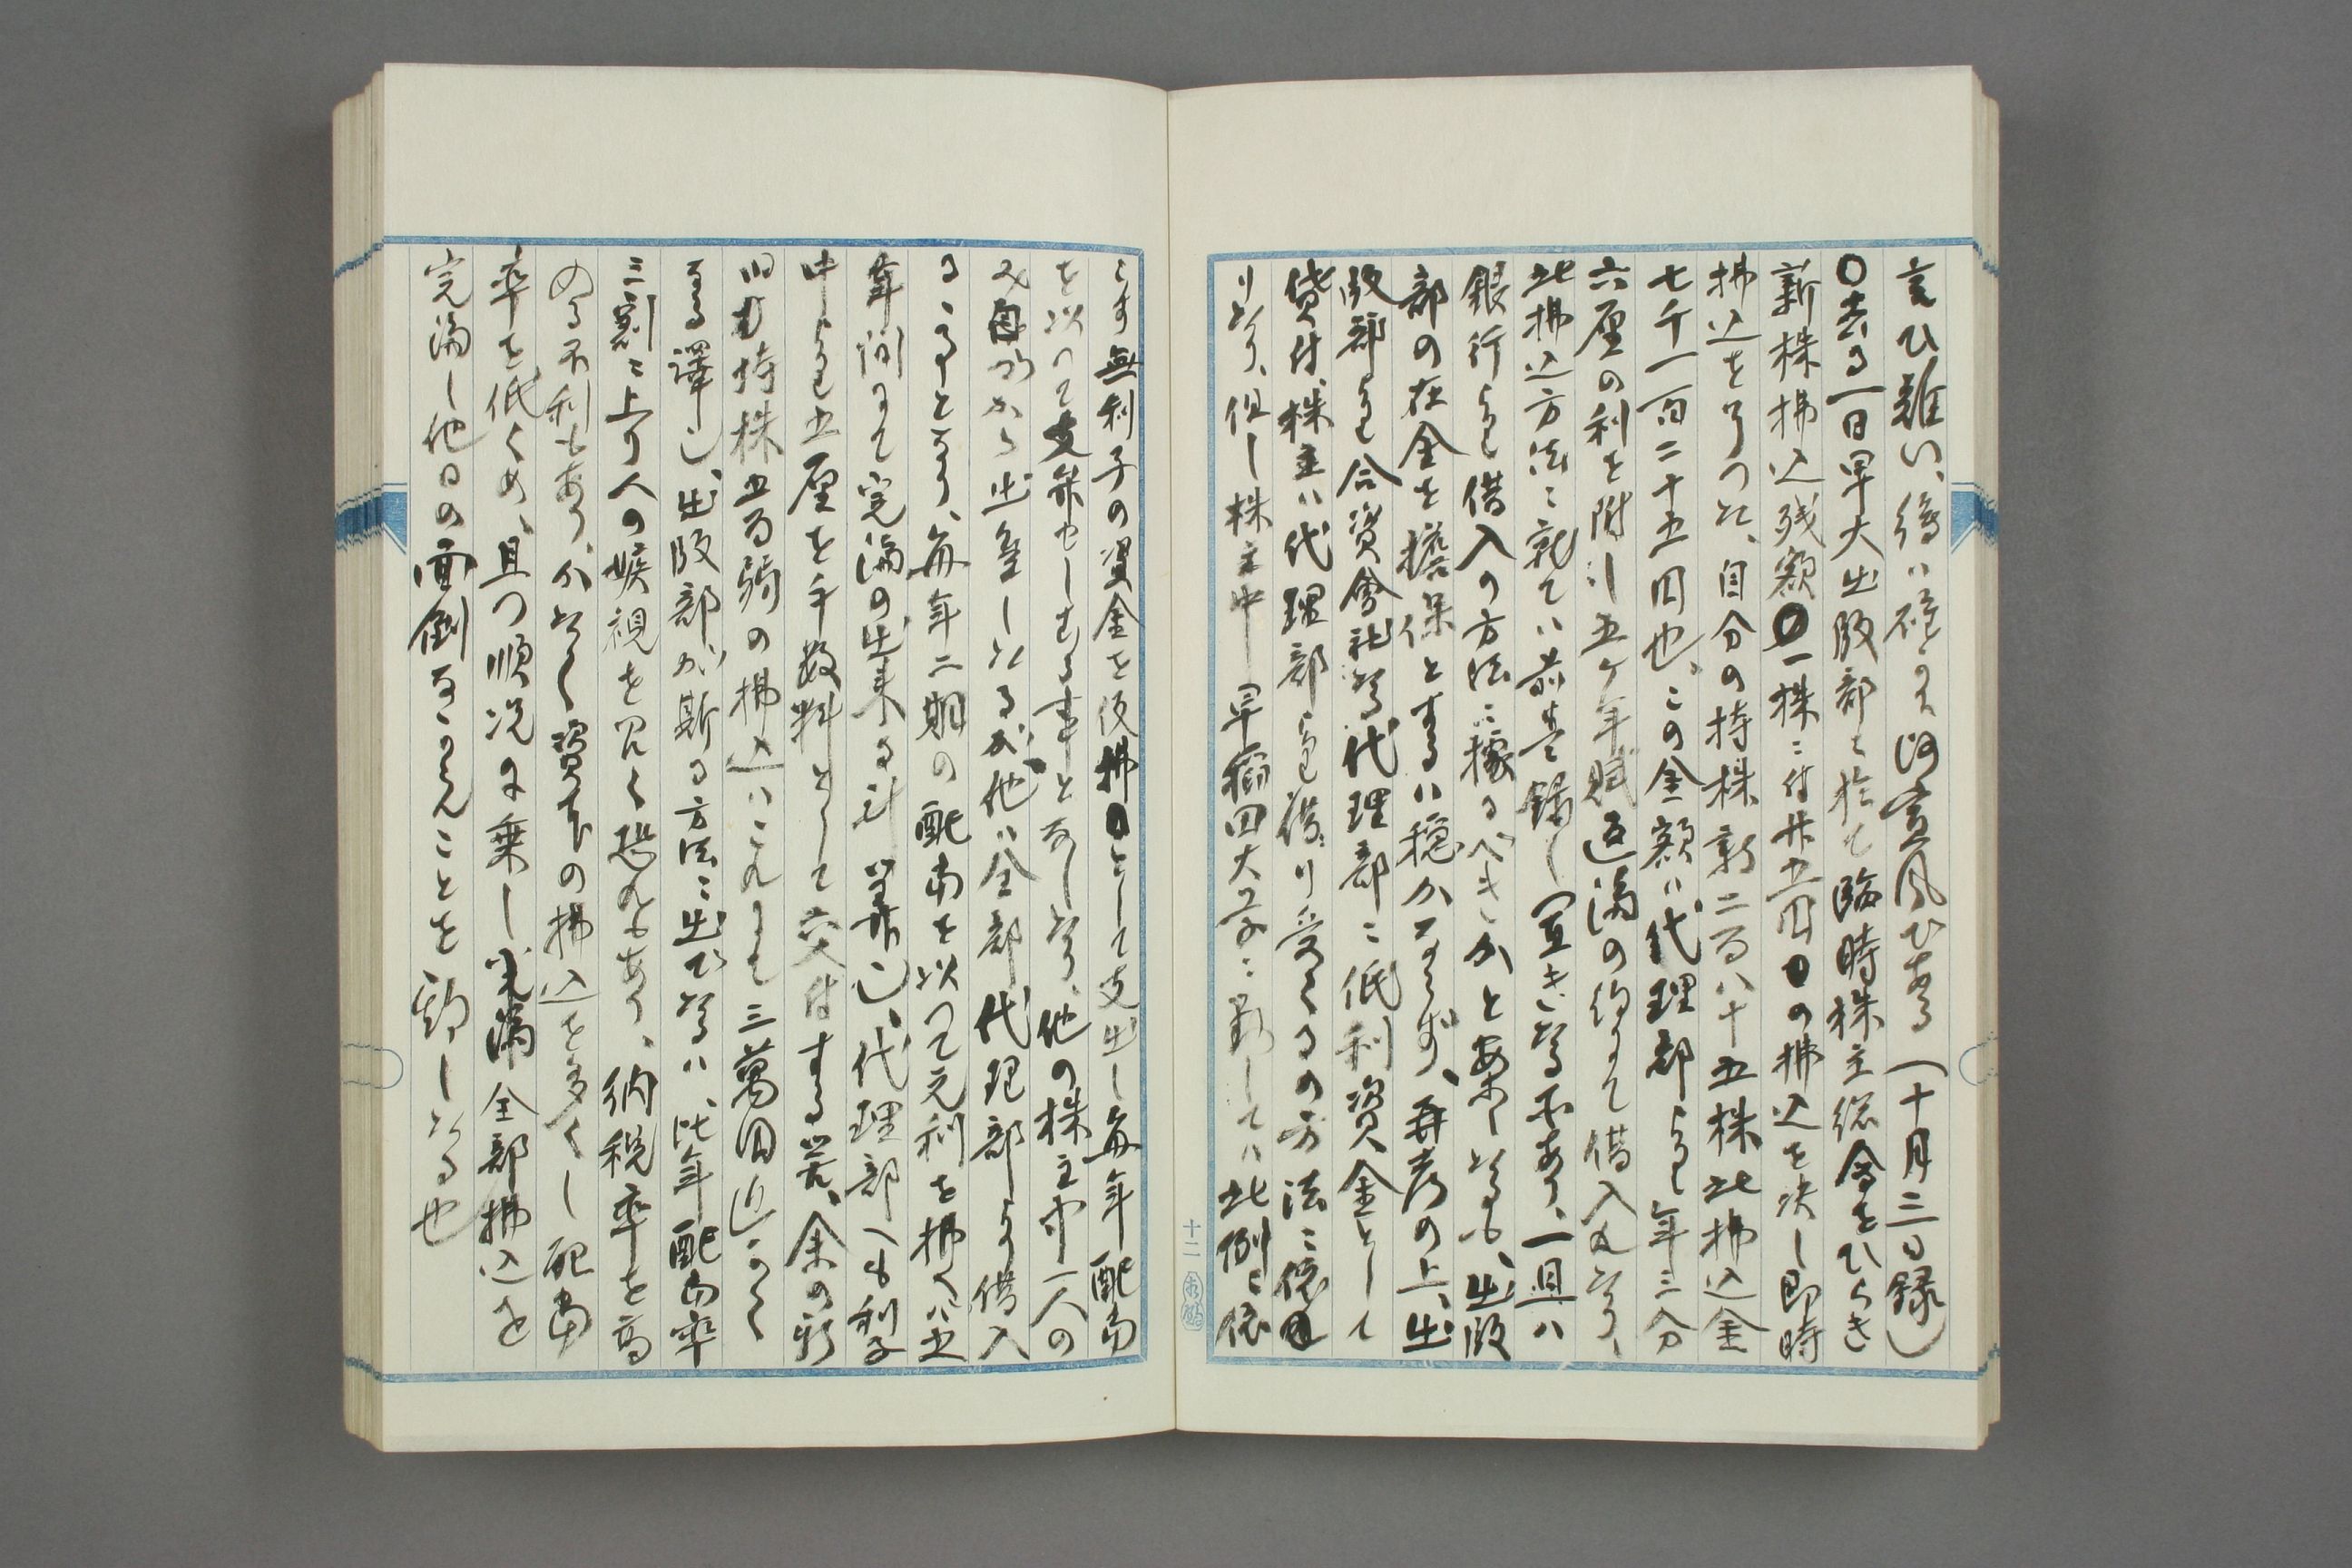 言ひ難い、
〇去る一日早大出版部に於て臨時株主総会をひらき
新株払込残額一株に付廿五円の払込を決し即時
払込を了つた、自分の持株新二百八十五株此払込金
七千一百二十五円也、この金額は代理部より年三分
六厘の利を附し五ケ年賦返済の約にて借入れたり、
此払込方法に就ては前巻録し置きたる所あり、一旦は
銀行より借入の方法に拠るべきかと案したるも、出版
部の在金を担保とするは穏かならず、再考の上、出
版部より合資会社なる代理部に低利資金として
貸付、株主は代理部より借り受くるの方法に依
りたり、但し株主中早稲田大学に対しては此例に依
らす無利子の資金を仮払として支出し毎年配当
を以つて支弁せしむる事となしたり、他の株主中一人の
み自から出金したるが他は全部代理部より借入
るゝことゝなり、毎年二期の配当を以つて元利を払へば五
年間にて完済の出来る計算也、代理部へも利子
中より五厘を手数料として交付する筈、余の新
旧持株五百弱の払込はこれにて三萬円近かく
なる訳也、出版部が斯る方法に出でたるは、此年配当率
三割に上り人の嫉視を招く恐れもあり、納税率を高
める不利もあり、かたく資本の払込を多くし配当
率を低くめ、且つ順況に乗し完済全部払込を
完済し他日の面倒なからんことを期したる也
十二